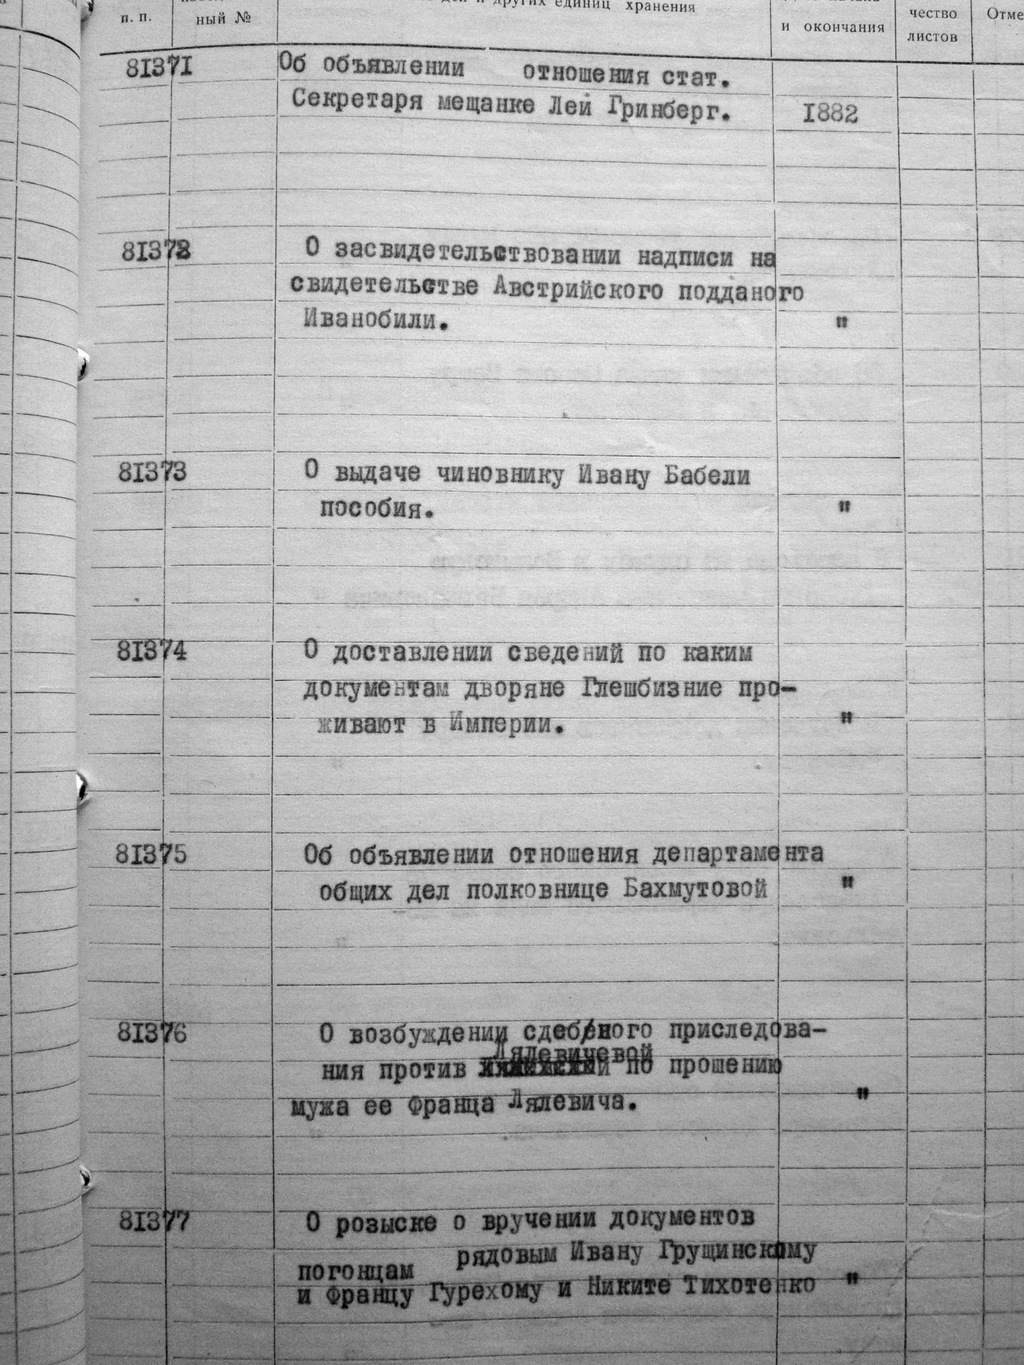 п. п.
ный №
других единиц хранения
и окончания
чество
листов
Отме
81371 Об объявлении отношения стат.
Секретаря мещанке Лей Гринберг. 1882
81372 О засвидетельствовании надписи на
свидетельстве Австрийского подданого
Иванобили. "
81373 О выдаче чиновнику Ивану Бабели
пособия. "
81374 О доставлении сведений по каким
документам дворяне Глешбизние про-
живают в Империи. "
81375 Об объявлении отношения департамента
общих дел полковнице Бахмутовой "
81376 О возбуждении сдебного приследова-
Лялевичевой
ния против по прошению
мужа ее Франца Лялевича. "
81377 О розыске о вручении документов
погонцам рядовым Ивану Грущинскому
и Францу Гурехому и Никите Тихотенко "